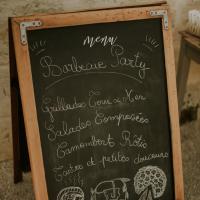 menu
Barbecue Party
Grillades Terre & Mer
Salades Composées
Camembert Rôtie
Tartes et petites douceurs